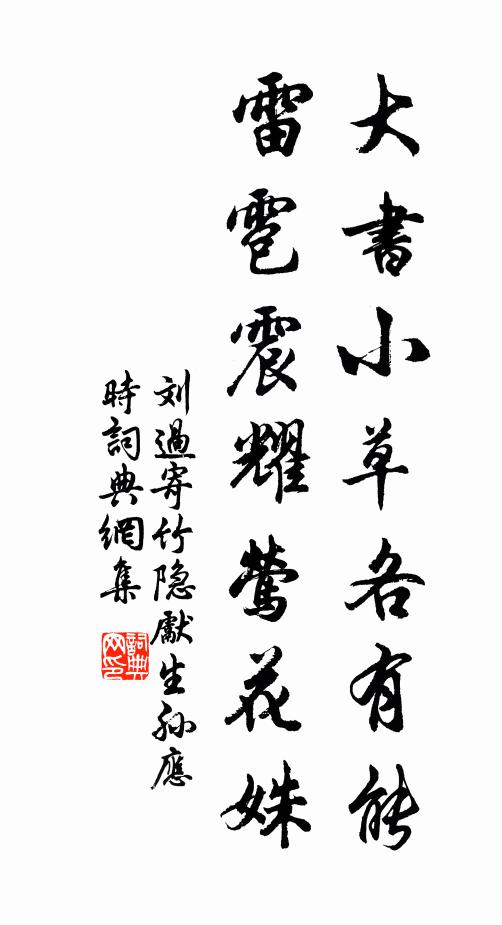 大書小草各有能
雷雹震耀鶯花姝
刘過寄竹隐獻生孙應
時詞典網集
詞典網印